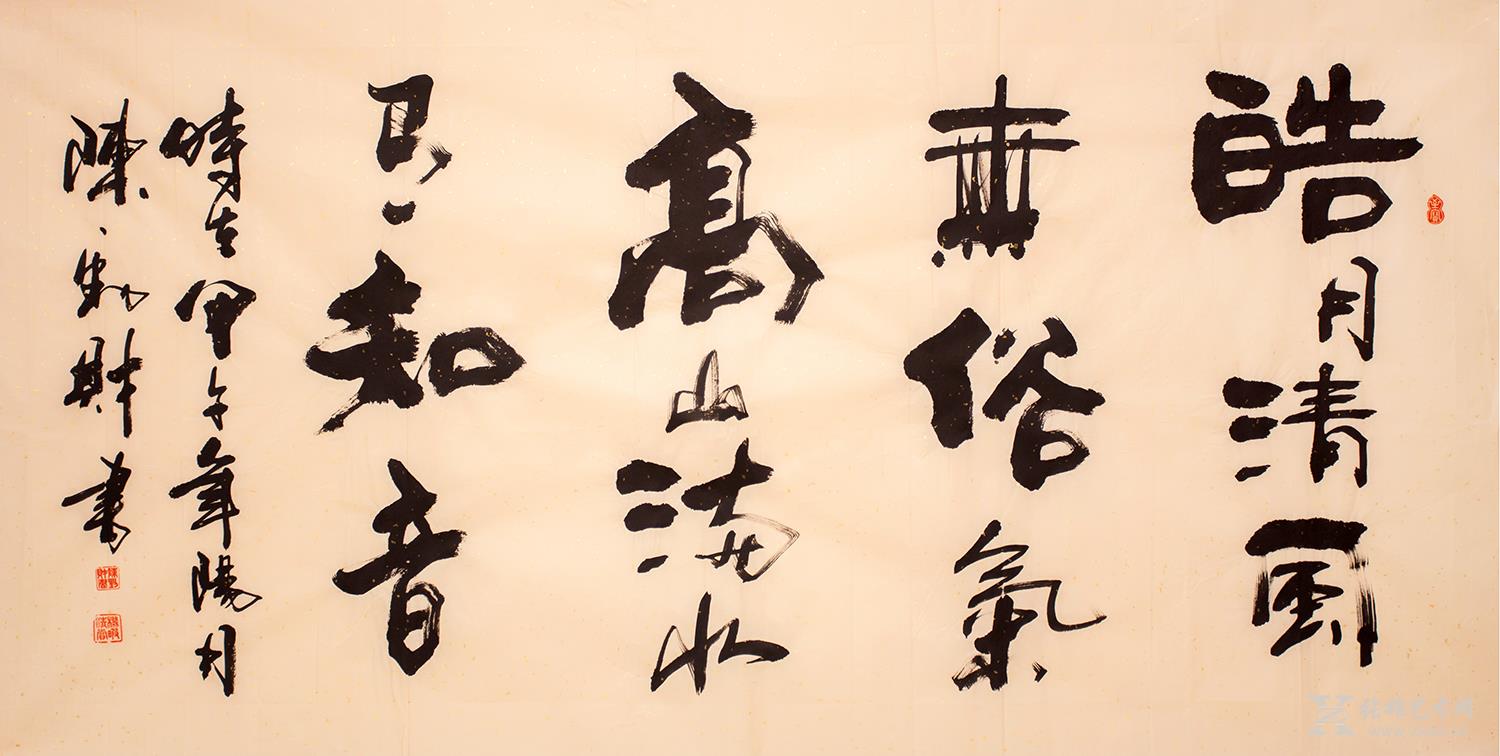 皓月清風
無俗氣
高山流水
知音
時在甲午年陽月
陳財書